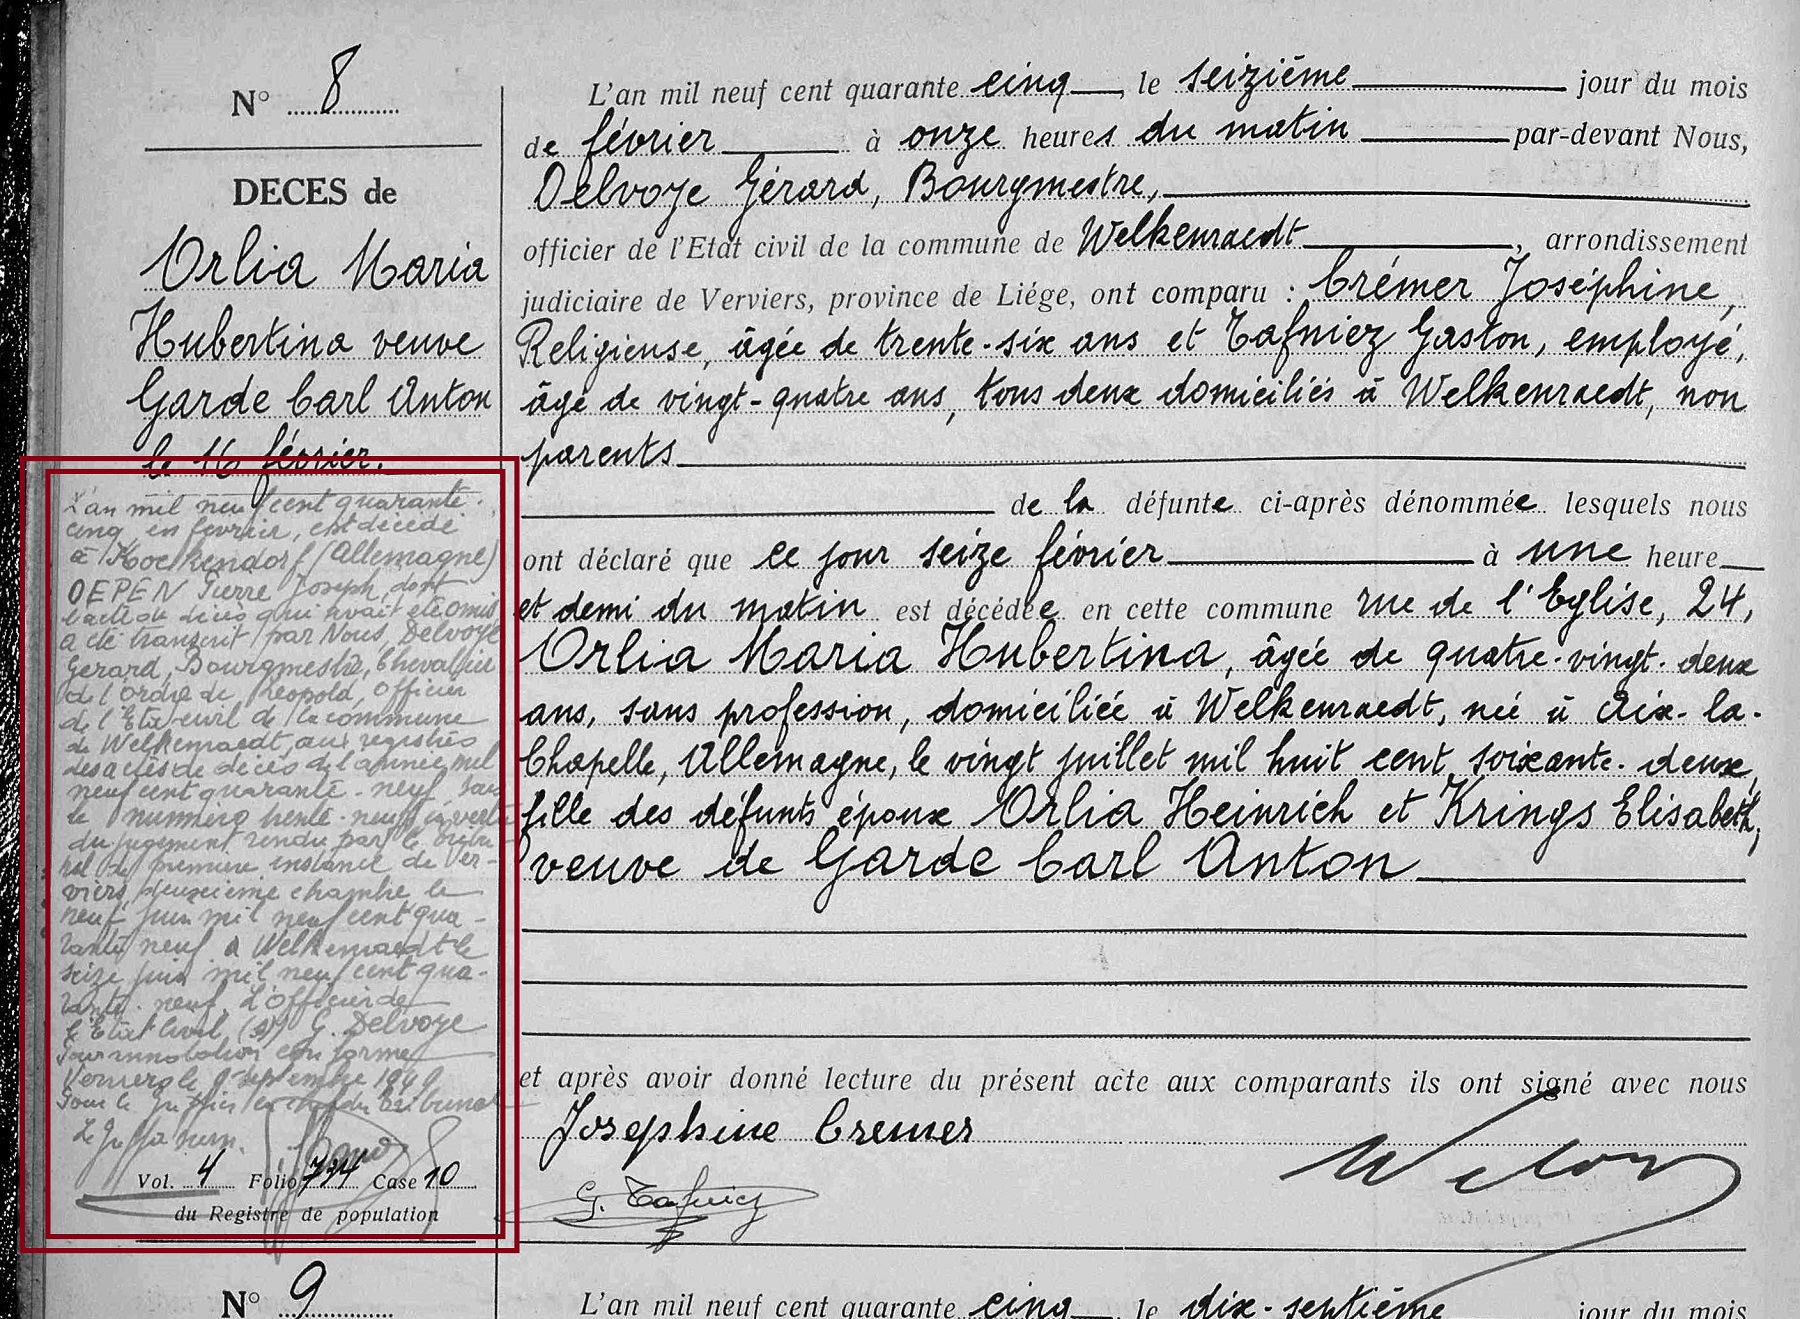 N° 8
DECES de
Orlia Maria
Hubertina veuve
Garde Carl Anton
le 16 février.
L'an mil neuf cent quarante-
cinq en février, est décédé
à Hockendorf (Allemagne)
OEPEN Pierre Joseph, dont
l'acte de décès qui avait été omis
a été transcrit par Nous, Delvoye
Gérard, Bourgmestre, Chevalier
de l'Ordre de Léopold, Officier
de l'Etat civil de la commune
de Welkenraedt, aux registres
des actes de décès de l'année mil
neuf cent quarante-neuf, sous
le numéro trente-neuf en vertu
du jugement rendu par le tribu-
nal de première instance de Ver-
viers, deuxième chambre le
neuf juin mil neuf cent qua-
rante neuf à Welkenraedt le
seize juin mil neuf cent qua-
rante-neuf. L'Officier de
l'Etat Civil, (s) G. Delvoye
Pour annotation conforme
Verviers le septembre 1949
Pour le Greffier en chef du tribunal
Vol. 4 Folio 734 Case 10
du Registre de population
L'an mil neuf cent quarante cinq, le seizième jour du mois
de février à onze heures du matin par-devant Nous,
Delvoye Gérard, Bourgmestre,
officier de l'Etat civil de la commune de Welkenraedt, arrondissement
judiciaire de Verviers, province de Liége, ont comparu : Crémer Joséphine,
Religieuse, âgée de trente-six ans et Tafniez Gaston, employé,
âgé de vingt-quatre ans, tous deux domiciliés à Welkenraedt, non
parents
de la défunte ci-après dénommée lesquels nous
ont déclaré que ce jour seize février à une heure
et demi du matin est décédée en cette commune rue de l'Eglise, 24,
Orlia Maria Hubertina, âgée de quatre-vingt-deux
ans, sans profession, domiciliée à Welkenraedt, née à Aix-la-
Chapelle, Allemagne, le vingt juillet mil huit cent soixante-deux,
fille des défunts époux Orlia Heinrich et Krings Elisabeth,
veuve de Garde Carl Anton
et après avoir donné lecture du présent acte aux comparants ils ont signé avec nous
Josephine Cremer
G. Tafniez
N° 9
L'an mil neuf cent quarante cinq, le dix-septième jour du mois